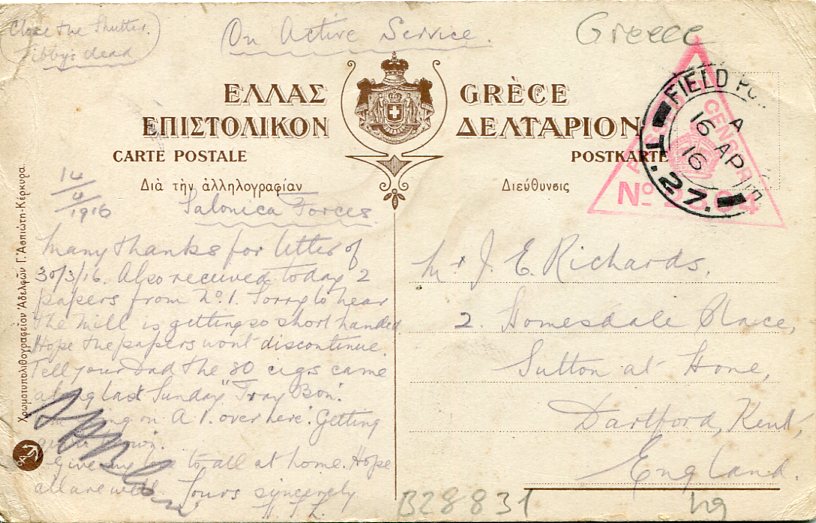 Close the Shutter.
Tibby's dead
On Active Service.
Greece
ΕΛΛΑΣ
GRÈCE
ΕΠΙΣΤΟΛΙΚΟΝ
ΔΕΛΤΑΡΙΟΝ
CARTE POSTALE
POSTKARTE
Διὰ τὴν ἀλληλογραφίαν
Διεύθυνσις
FIELD
A
16 AP
16
T.27.
CENSOR
No
14/4/1916
Salonica Forces.
Many thanks for letter of
30/3/16. Also received today 2
papers from No. 1. Sorry to hear
the Mill is getting so short handed
Hope the papers wont discontinue.
Tell your Dad the 80 cigs came
along last Sunday "Tray Bon".
on A1. over here. Getting
Give my to all at home. Hope
all are well. Yours sincerely
Mr J. E. Richards,
2. Homesdale Place,
Sutton at Hone,
Dartford, Kent,
England.
Χρωματυπολιθογραφείον Ἀδελφῶν Γ. Ἀσπιώτη-Κέρκυρα.
B28831